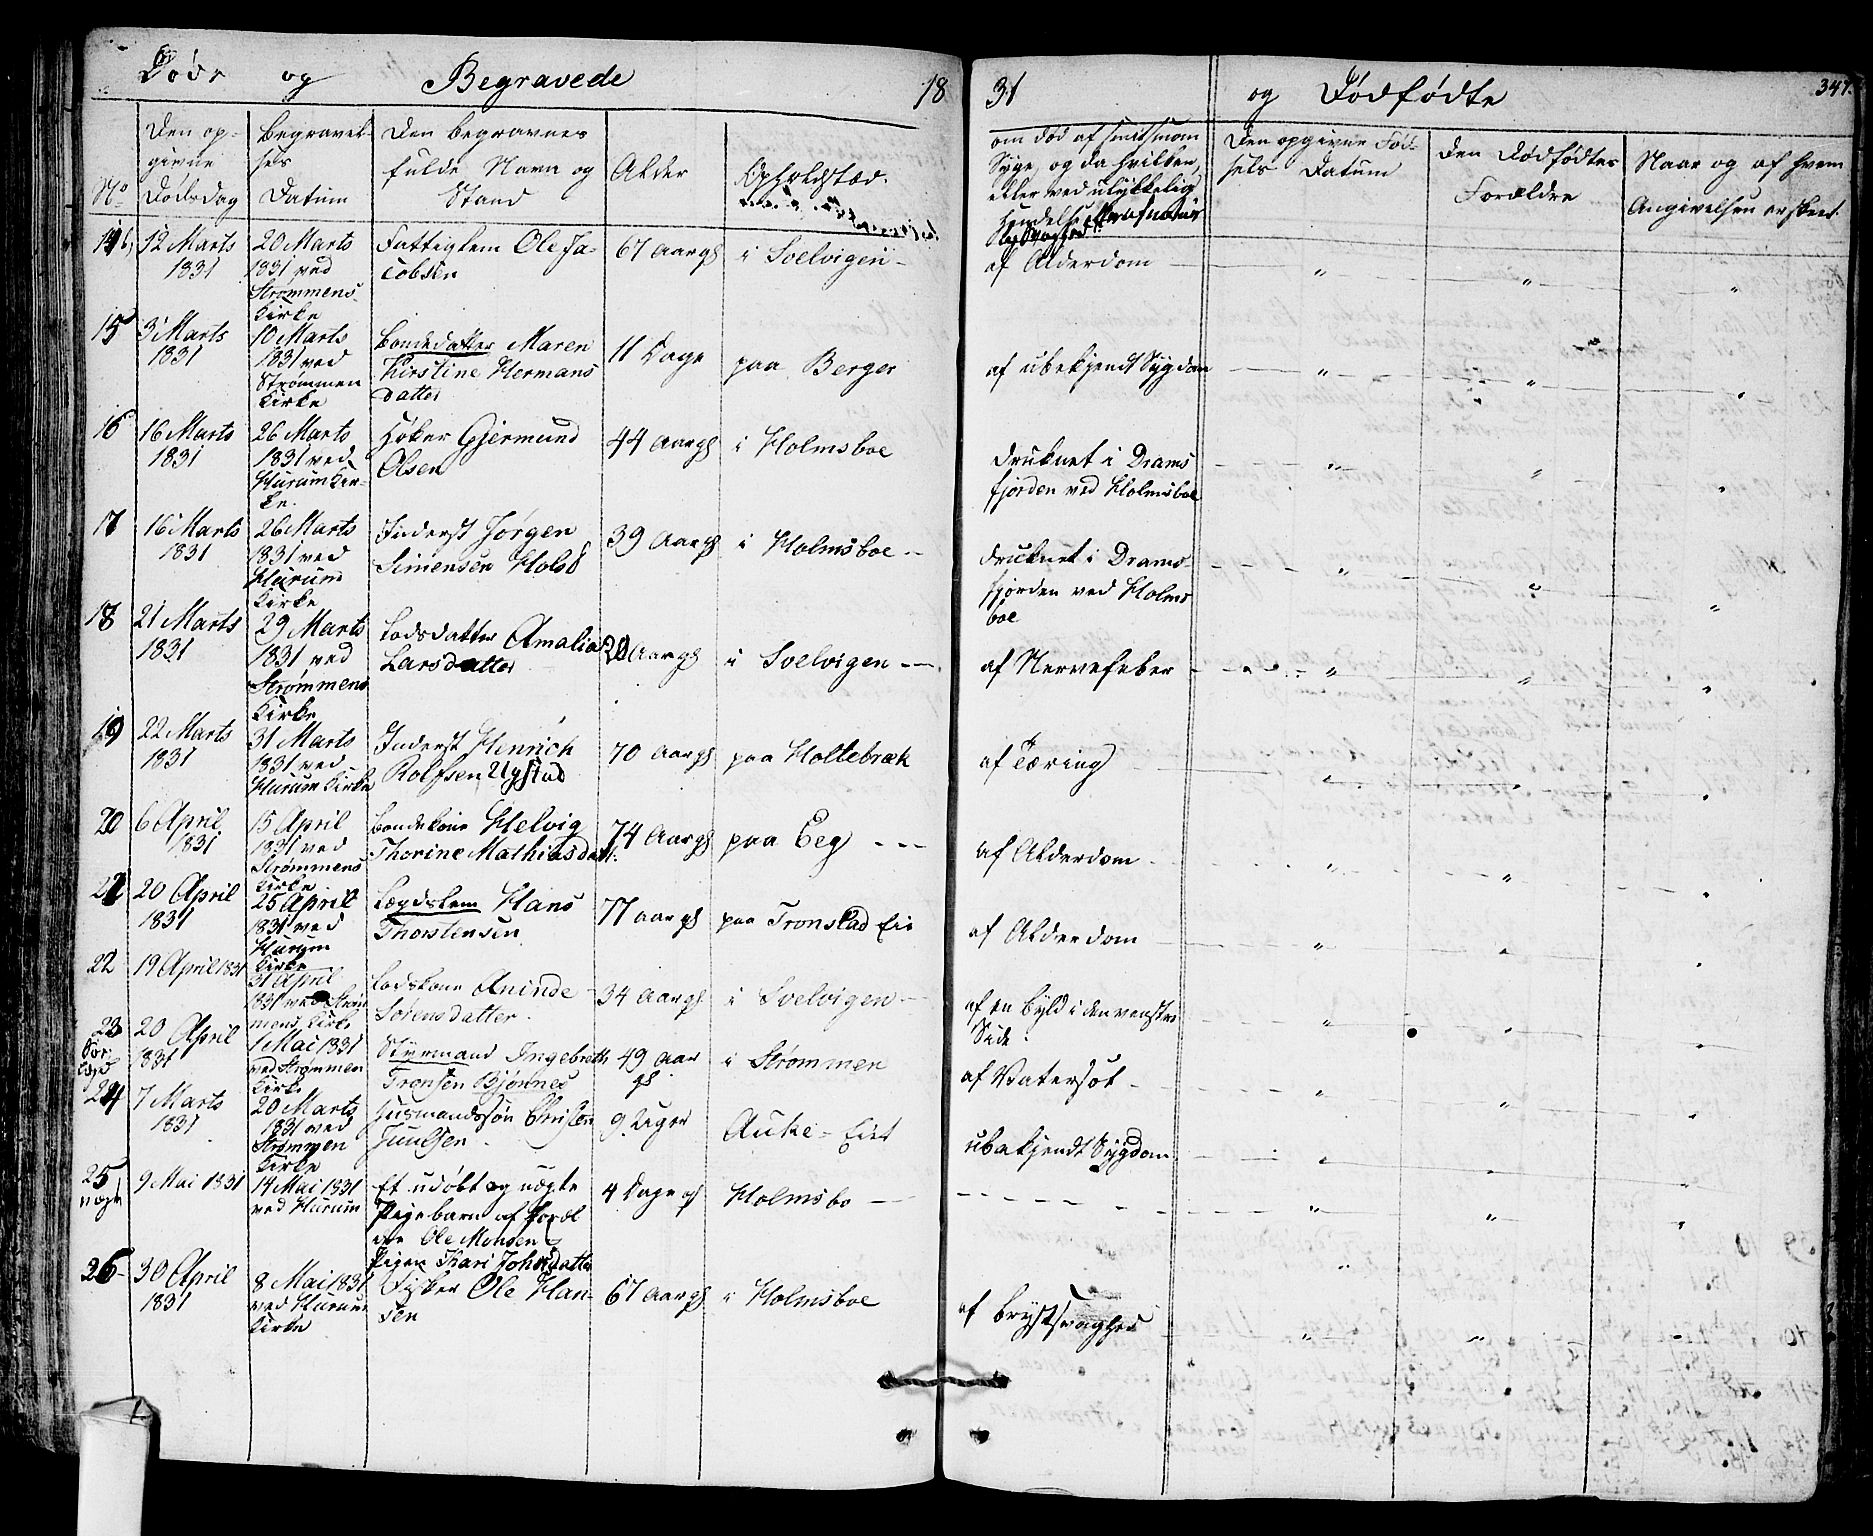 Døde og Begravede 18
31 og Dødfødte 347.
No
Den op-
givne
Dødsdag
Begravel-
ses
Datum
Den begravnes
fulde Navn og
Stand
Alder
Opholdsted.
om død af smitsom
Syge, og da hvilken,
eller ved ulykkelig
Hendelse
Den opgivne Fød-
sels Datum
Den Dødfødtes
Forældre
Naar og af hvem
Angivelsen er skeet.
12 Marts
1831
20 Marts
1831 ved
Strømmens
Kirke
Fattiglem Ole Ja-
cobsen
67 Aar gl
i Svelvigen
af Alderdom
15
3 Marts
1831
10 Marts
1831 ved
Strømmen
Kirke
Bondedatter Maren
Kirstine Hermans
datter
11 Dage
paa Berger
af ubekjendt Sygdom
16
16 Marts
1831
26 Marts
1831 ved
Hurum Kir-
ke.
Høker Gjermund
Olsen
44 Aar gl
i Holmsboe
druknet i Drams
fjorden ved Holmsboe
17
16 Marts
1831
26 Marts
1831 ved
Hurum
Kirke
Inderst Jørgen
Simensen Holst
39 Aar gl
i Holmsboe
druknet i Drams-
fjorden ved Holms
boe
18
21 Marts
1831
29 Marts
1831 ved
Strømmens
Kirke
Lodsdatter Amalia
Larsdatter
20 Aar gl
i Svelvigen
af Nervefeber
19
22 Marts
1831
31 Marts
1831 ved
Hurum Kirke
Inderst Henrich
Rolfsen
70 Aar gl
paa Holtebræk
af Tæring
20
6 April
1831
15 April
1831 ved
Strømmens
Kirke
Bondekone Helvig
Thorine Mathiasdatt.
74 Aar gl
paa Eeg
af Alderdom
21
20 April
1831
25 April
1831 ved
Hurum
Kirke
Lægdslem Hans
Thorstensen
77 aar gl
paa Tronstad Eie
af Alderdom
22
19 April 1831
31 April
1831 ved Strøm
mens Kirke
Lodskone Aninde
Sørensdatter
34 Aar gl
i Svelvigen
af en Byld i den venstre
Side
23
20 April
1831
1 Mai 1831
ved Strømmen
Kirke
Styrmand Ingebreth
Tronsen Bjørnes
49 Aar
gl
i Strømmen
af Vatersot
24
7 Marts
1831
20 Marts
1831 ved
Strømmen
Kirke
Husmandssøn Christen
Juulsen
9 Uger
Auke-Eiet
ubekjendt Sygdom
25
uægte
9 Mai 1831
14 Mai 1831
ved Hurum
Et udøbt og uægte
Pigebarn af Foræl
dre Ole Monsen &
Pigen Kari Johnsdatter
4 Dage gl
Holmsbo
26
30 April
1831
8 Mai 1831
ved Hurum
Kirke
Fisker Ole Han-
sen
67 Aar gl
i Holmsboe
af Brystsvaghed